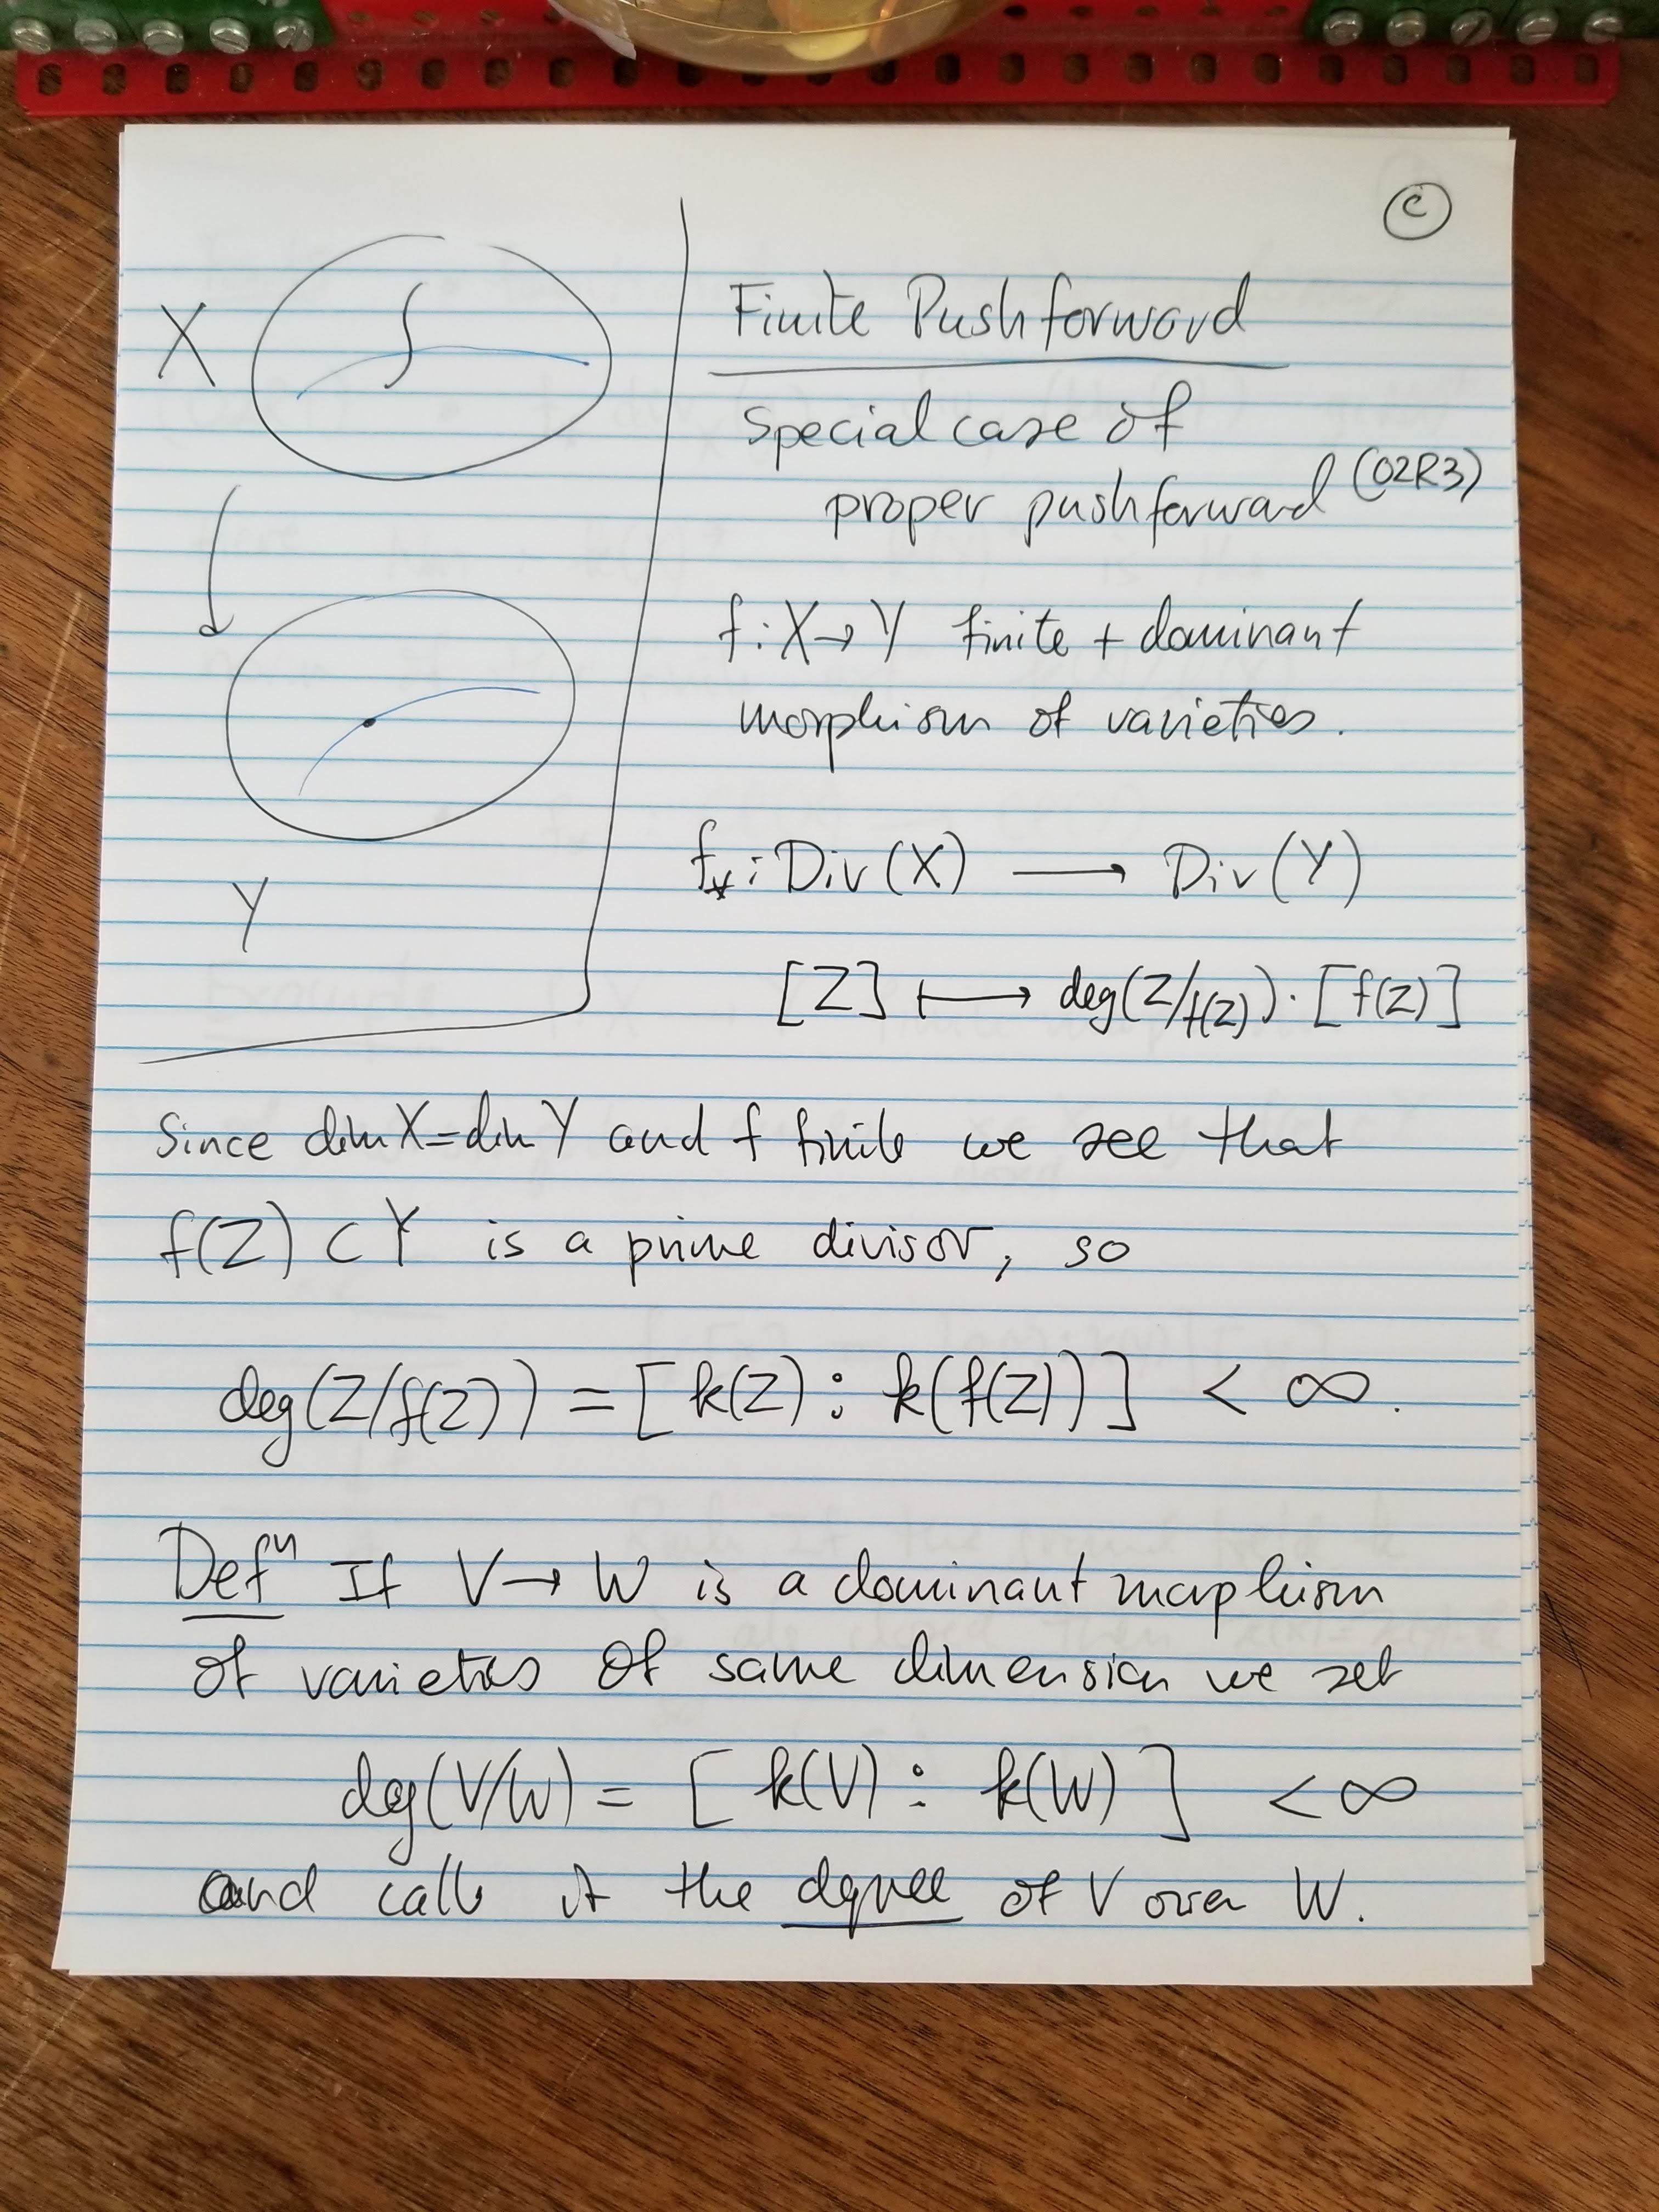 c
X
Y
Finite Pushforward
Special case of
proper pushforward (02R3)
f : X → Y finite + dominant
morphism of varieties.
f_* : Div(X) ⟶ Div(Y)
[Z] ⟼ deg(Z/f(Z)) · [f(Z)]
Since dim X = dim Y and f finite we see that
f(Z) ⊂ Y is a prime divisor, so
deg(Z/f(Z)) = [k(Z) : k(f(Z))] < ∞.
Defⁿ If V → W is a dominant morphism
of varieties of same dimension we set
deg(V/W) = [k(V) : k(W)] < ∞
and call it the degree of V over W.